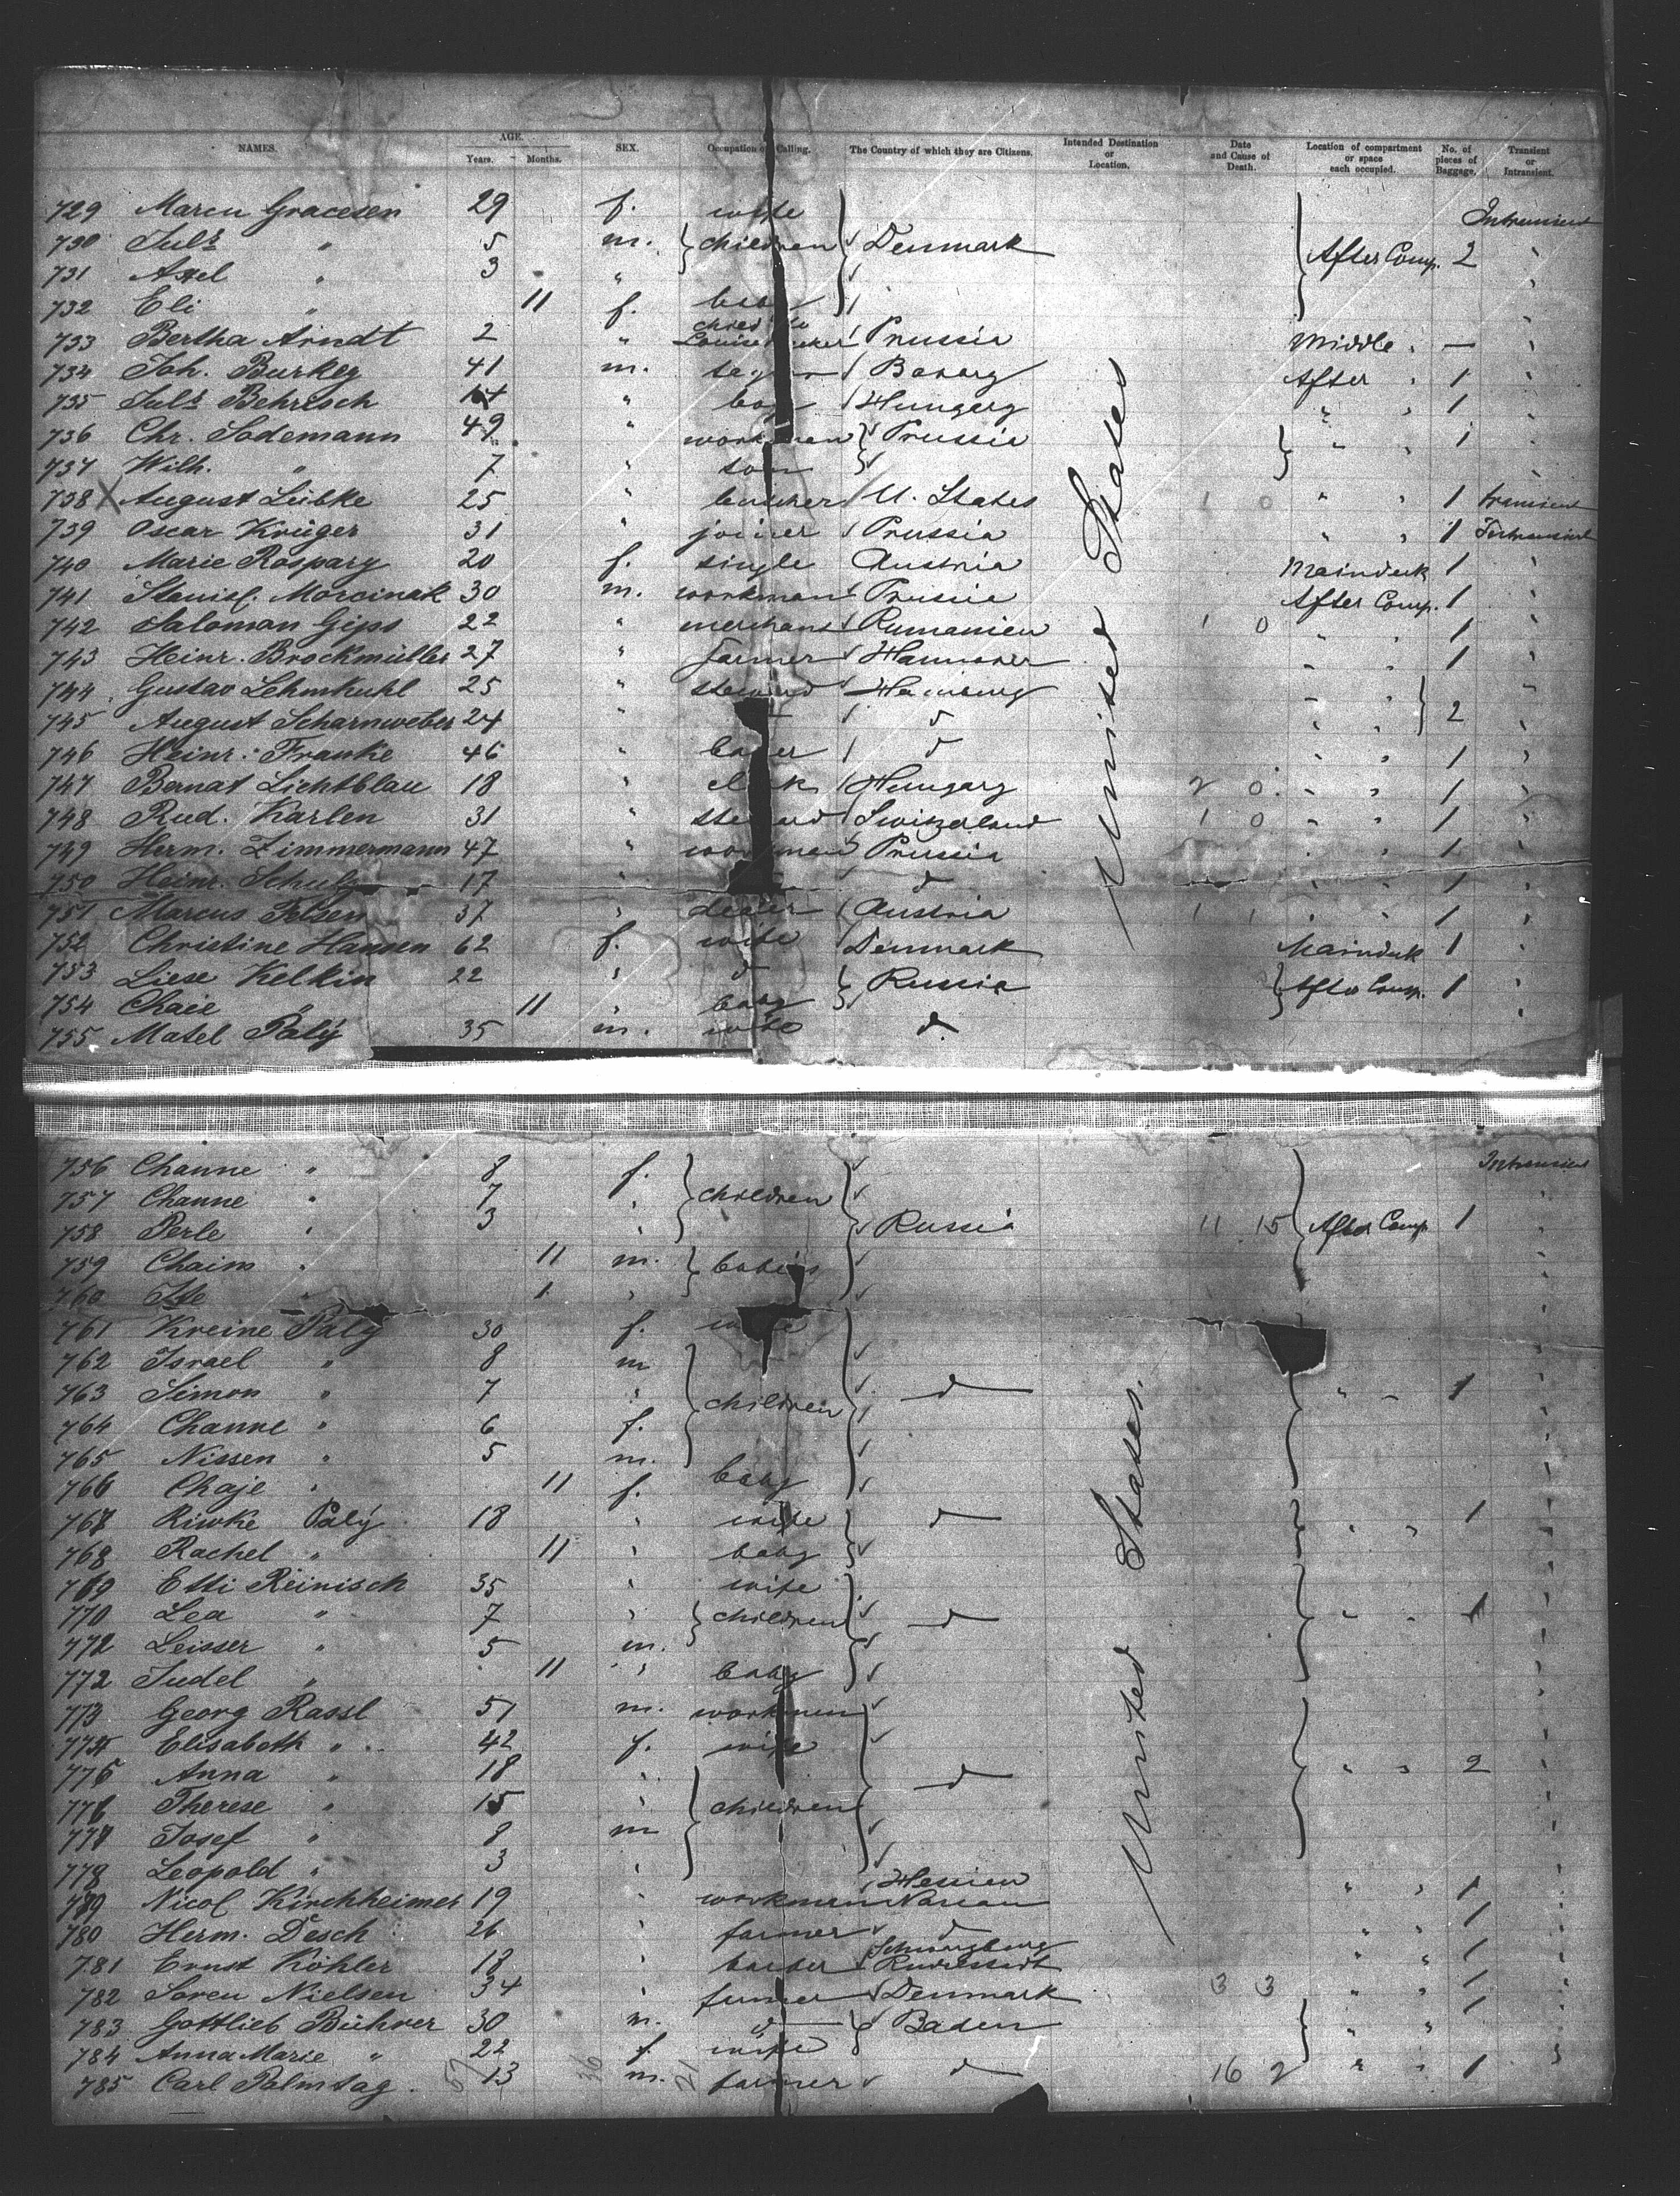 NAMES. AGE. Years. Months. SEX. Occupation or Calling. The Country of which they are Citizens. Intended Destination or Location. Date and Cause of Death. Location of compartment or space each occupied. No. of pieces of Baggage. Transient or Intransient.
729 Maren Gracesen 29 f. wife Intransient
730 Juls " 5 m. children Denmark After Comp. 2
731 Axel " 3 "
732 Eli " 11 f. baby
733 Bertha Arndt 2 " child to Louise Prussia Middle " —
734 Joh. Burkey 41 m. Bavary After " 1
735 Juls Behrisch 14 " boy Hungary " " 1
736 Chr. Sodemann 49 " workman Prussia " " 1
737 Wilh. " 7 " son
738 X August Lübke 25 " butcher U. States 1 0 " " 1 transient
739 Oscar Krüger 31 " joiner Prussia " " 1 Intransient
740 Marie Rospary 20 f. single Austria Maindeck 1
741 Stanisl. Morcinak 30 m. workman Prussia After Comp. 1
742 Saloman Gips 22 " merchant Rumanien 1 0 " " 1
743 Heinr. Brockmüller 27 " farmer Hannover " " 1
744 Gustav Lehmkuhl 25 " steward Hamburg " "
745 August Scharnweber 24 " d " " 2
746 Heinr. Franke 46 " d " " 1
747 Bernat Lichtblau 18 " clerk Hungary 2 0 " " 1
748 Rud. Karlen 31 " steward Switzerland 1 0 " " 1
749 Herm. Zimmermann 47 " workman Prussia " " 1
750 Heinr. Schulz 17 " d " " 1
751 Marcus Felsen 37 " dealer Austria 1 1 " " 1
752 Christine Hansen 62 f. wife Denmark Maindeck 1
753 Liese Kelkin 22 " d Russia After Comp. 1
754 Chaie " 11 " baby
755 Matel Palÿ 35 m. wife d.
United States
756 Channe " 8 f. Intransient
757 Channe " 7 " children
758 Perle " 3 " Russia 11 15 After Comp 1
759 Chaim " 11 m. babies
760 1 "
761 Kreine Palÿ 30 f. wife
762 Israel " 8 m
763 Simon " 7 " children d " " 1
764 Channe " 6 f.
765 Nissen " 5 m.
766 Chaje " 11 f. baby
767 Riwke Palÿ 18 " wife d " " 1
768 Rachel " 11 " baby
769 Etti Reinisch 35 " wife
770 Lea " 7 " children d " " 1
772 Leisser " 5 m.
772 Judel " 11 " baby
773 Georg Rassl 51 m. workman
774 Elisabeth " 42 f. wife
775 Anna " 18 " d " " 2
776 Therese " 15 " children
777 Josef " 8 m
778 Leopold " 3 "
779 Nicol Kirchheimer 19 " workman Hessen Nassau " " 1
780 Herm. Desch 26 " farmer d " " 1
781 Ernst Köhler 18 " Schwarzburg Rudolstadt " " 1
782 Soren Nielsen 34 " farmer Denmark 3 3 " " 1
783 Gottlieb Bührer 30 m. d Baden " " 1
784 Anna Marie " 22 f. wife
785 Carl Palmtag 13 m. farmer d 16 2 " " 1
United States.